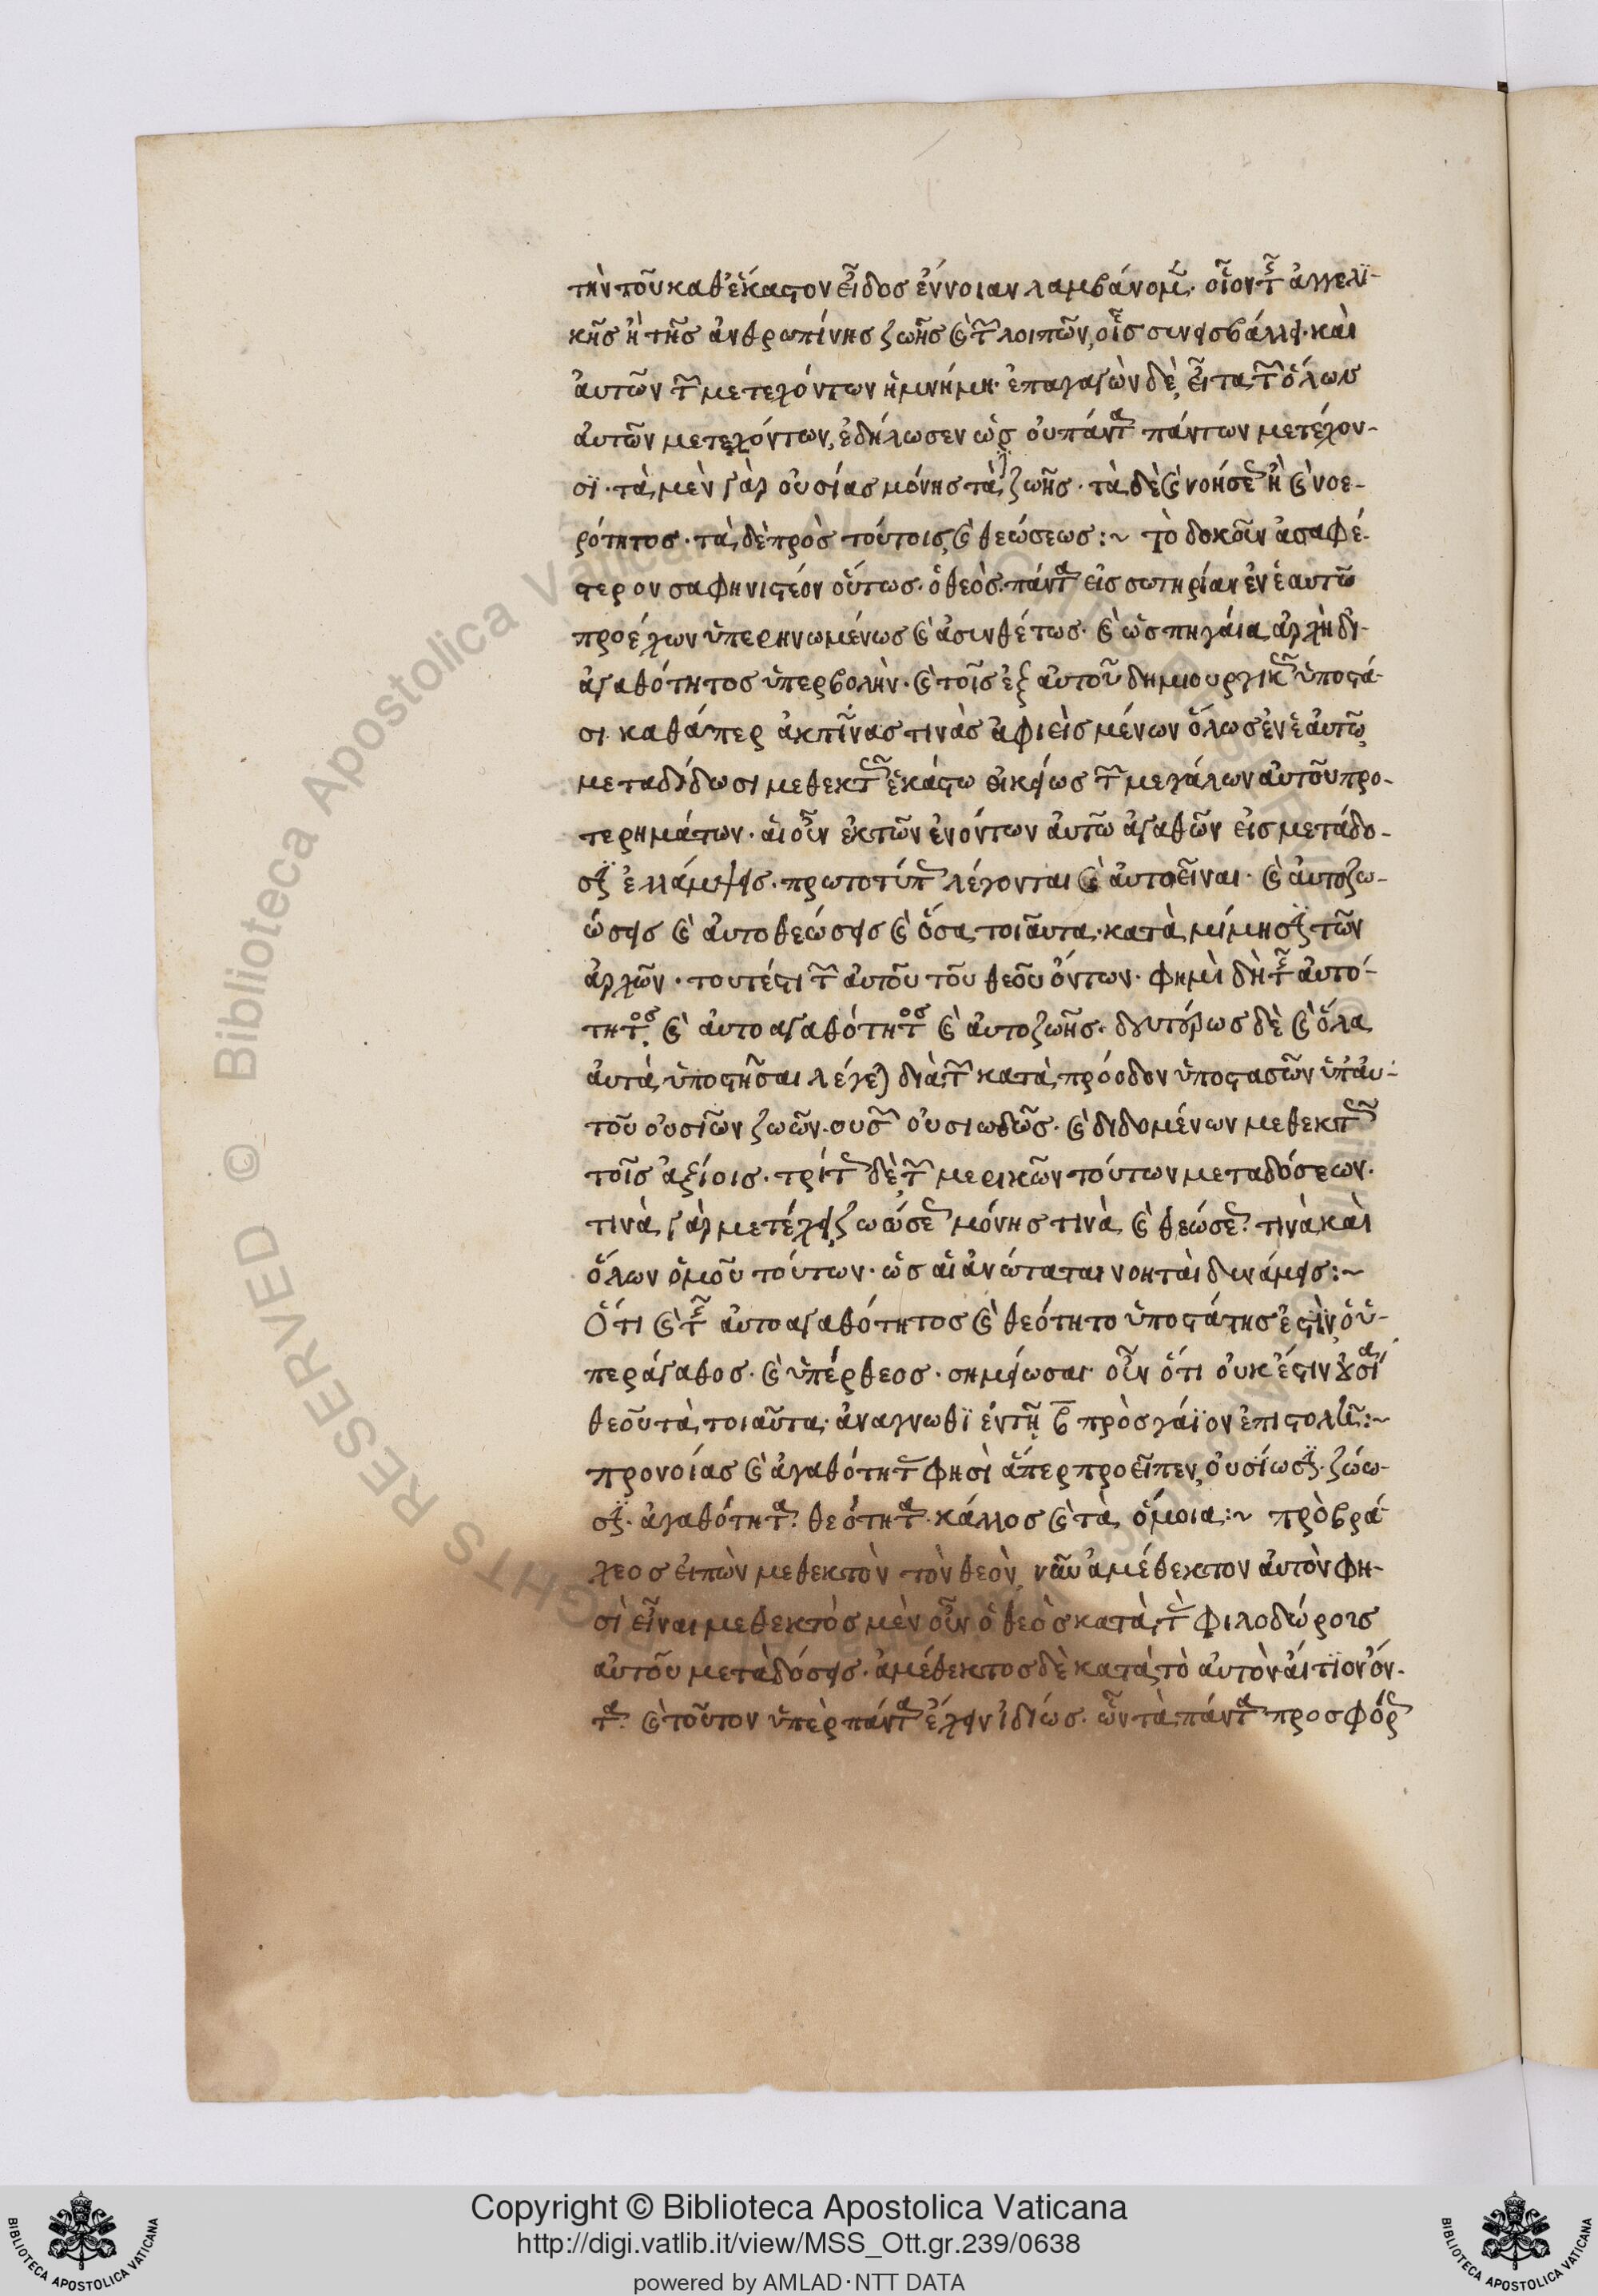 τὴν τοῦ καθ' ἕκαστον εἶδος ἔννοιαν λαμβάνομεν. οἷον τῆς ἀγγελι-
κῆς ἢ τῆς ἀνθρωπίνης ζωῆς καὶ τῶν λοιπῶν, οἷς συνεισβάλλει καὶ
αὐτῶν τῶν μετεχόντων ἡ μνήμη. ἐπαγαγὼν δὲ, εἶτα τῶν ὅλως
αὐτῶν μετεχόντων, ἐδήλωσεν ὡς οὐ πάντα πάντων μετέχου-
σι. τὰ μὲν γὰρ οὐσίας μόνης τὰ δὲ ζωῆς. τὰ δὲ καὶ νοήσεως ἢ καὶ νοε-
ρότητος. τὰ δὲ πρὸς τούτοις καὶ θεώσεως :~ τὸ δοκοῦν ἀσαφέ-
στερον σαφηνιστέον οὕτως. ὁ θεὸς πάντα εἰς σωτηρίαν ἐν ἑαυτῶ
προέχων ὑπερηνωμένως καὶ ἀσυνθέτως. καὶ ὡς πηγαία ἀρχὴ δι'
ἀγαθότητος ὑπερβολὴν. καὶ τοῖς ἐξ αὐτοῦ δημιουργικῶς ὑποστᾶ-
σι καθάπερ ἀκτῖνας τινὰς ἀφιεὶς μένων ὅλως ἐν ἑαυτῶ,
μεταδίδωσι μεθεκτῶς ἑκάστω οἰκείως τῶν μεγάλων αὐτοῦ προ-
τερημάτων. αἱ οὖν ἐκ τῶν ἐνόντων αὐτῶ ἀγαθῶν εἰς μετάδο-
σιν ἐλλάμψεις. πρωτοτύπως λέγονται καὶ αὐτοεῖναι. καὶ αὐτοζω-
ώσεις καὶ αὐτοθεώσεις καὶ ὅσα τοιαῦτα. κατὰ μίμησιν τῶν
ἀρχῶν. τουτέστι τῶν αὐτοῦ τοῦ θεοῦ ὄντων. φημὶ δὴ τῆς αὐτό-
τητος, καὶ αὐτοαγαθότητος καὶ αὐτοζωῆς. δευτέρως δὲ καὶ ὅλα
αὐτὰ ὑποστῆσαι λέγεται διὰ τῶν κατὰ πρόοδον ὑποστασῶν ὑπ' αὐ-
τοῦ οὐσιῶν ζωῶν οὐσῶν οὐσιωδῶς. καὶ διδομένων μεθεκτῶς
τοῖς ἀξίοις. τρίτως δὲ τῶν μερικῶν τούτων μεταδόσεων.
τινὰ γὰρ μετέχει ζωώσεως μόνης τινὰ καὶ θεώσεως. τινὰ καὶ
ὅλων ὁμοῦ τούτων. ὡς αἱ ἀνώταται νοηταὶ δυνάμεις :~
Ὅτι καὶ τῆς αὐτοαγαθότητος καὶ θεότητο ὑποστάτης ἐστὶν ὁ ὑ-
περάγαθος. καὶ ὑπέρθεος. σημείωσαι οὖν ὅτι οὐκ ἔστιν οὐσία
θεοῦ τὰ τοιαῦτα. ἀνάγνωθι ἐν τῆ β πρὸς γάϊον ἐπιστολῆ :~
προνοίας καὶ ἀγαθότητας φησὶ ἅπερ προεῖπεν, οὐσίωσιν. ζώω-
σιν. ἀγαθότητα. θεότητα. κάλλος καὶ τὰ ὅμοια :~ πρὸ βρα-
χέος εἰπὼν μεθεκτὸν τὸν θεὸν, νῦν ἀμέθεκτον αὐτὸν φη-
σὶ εἶναι μεθεκτὸς μὲν οὖν ὁ θεὸς κατὰ τὰς φιλοδώροις
αὐτοῦ μεταδόσεις. ἀμέθεκτος δὲ κατὰ τὸ αὐτὸν αἴτιον ὄν-
τα. καὶ τοῦτον ὑπὲρ πάντα ἔχειν ἰδίως. ὧν τὰ πάντα προσφόρως
Copyright © Biblioteca Apostolica Vaticana
http://digi.vatlib.it/view/MSS_Ott.gr.239/0638
powered by AMLAD·NTT DATA